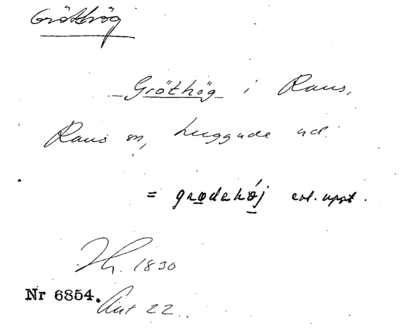 Gröthög
Gröthög i Raus,
Raus sn, Luggude hd.
= grødehój enl. uppt.
Th. 1830
Nr 6854. Ant 22.